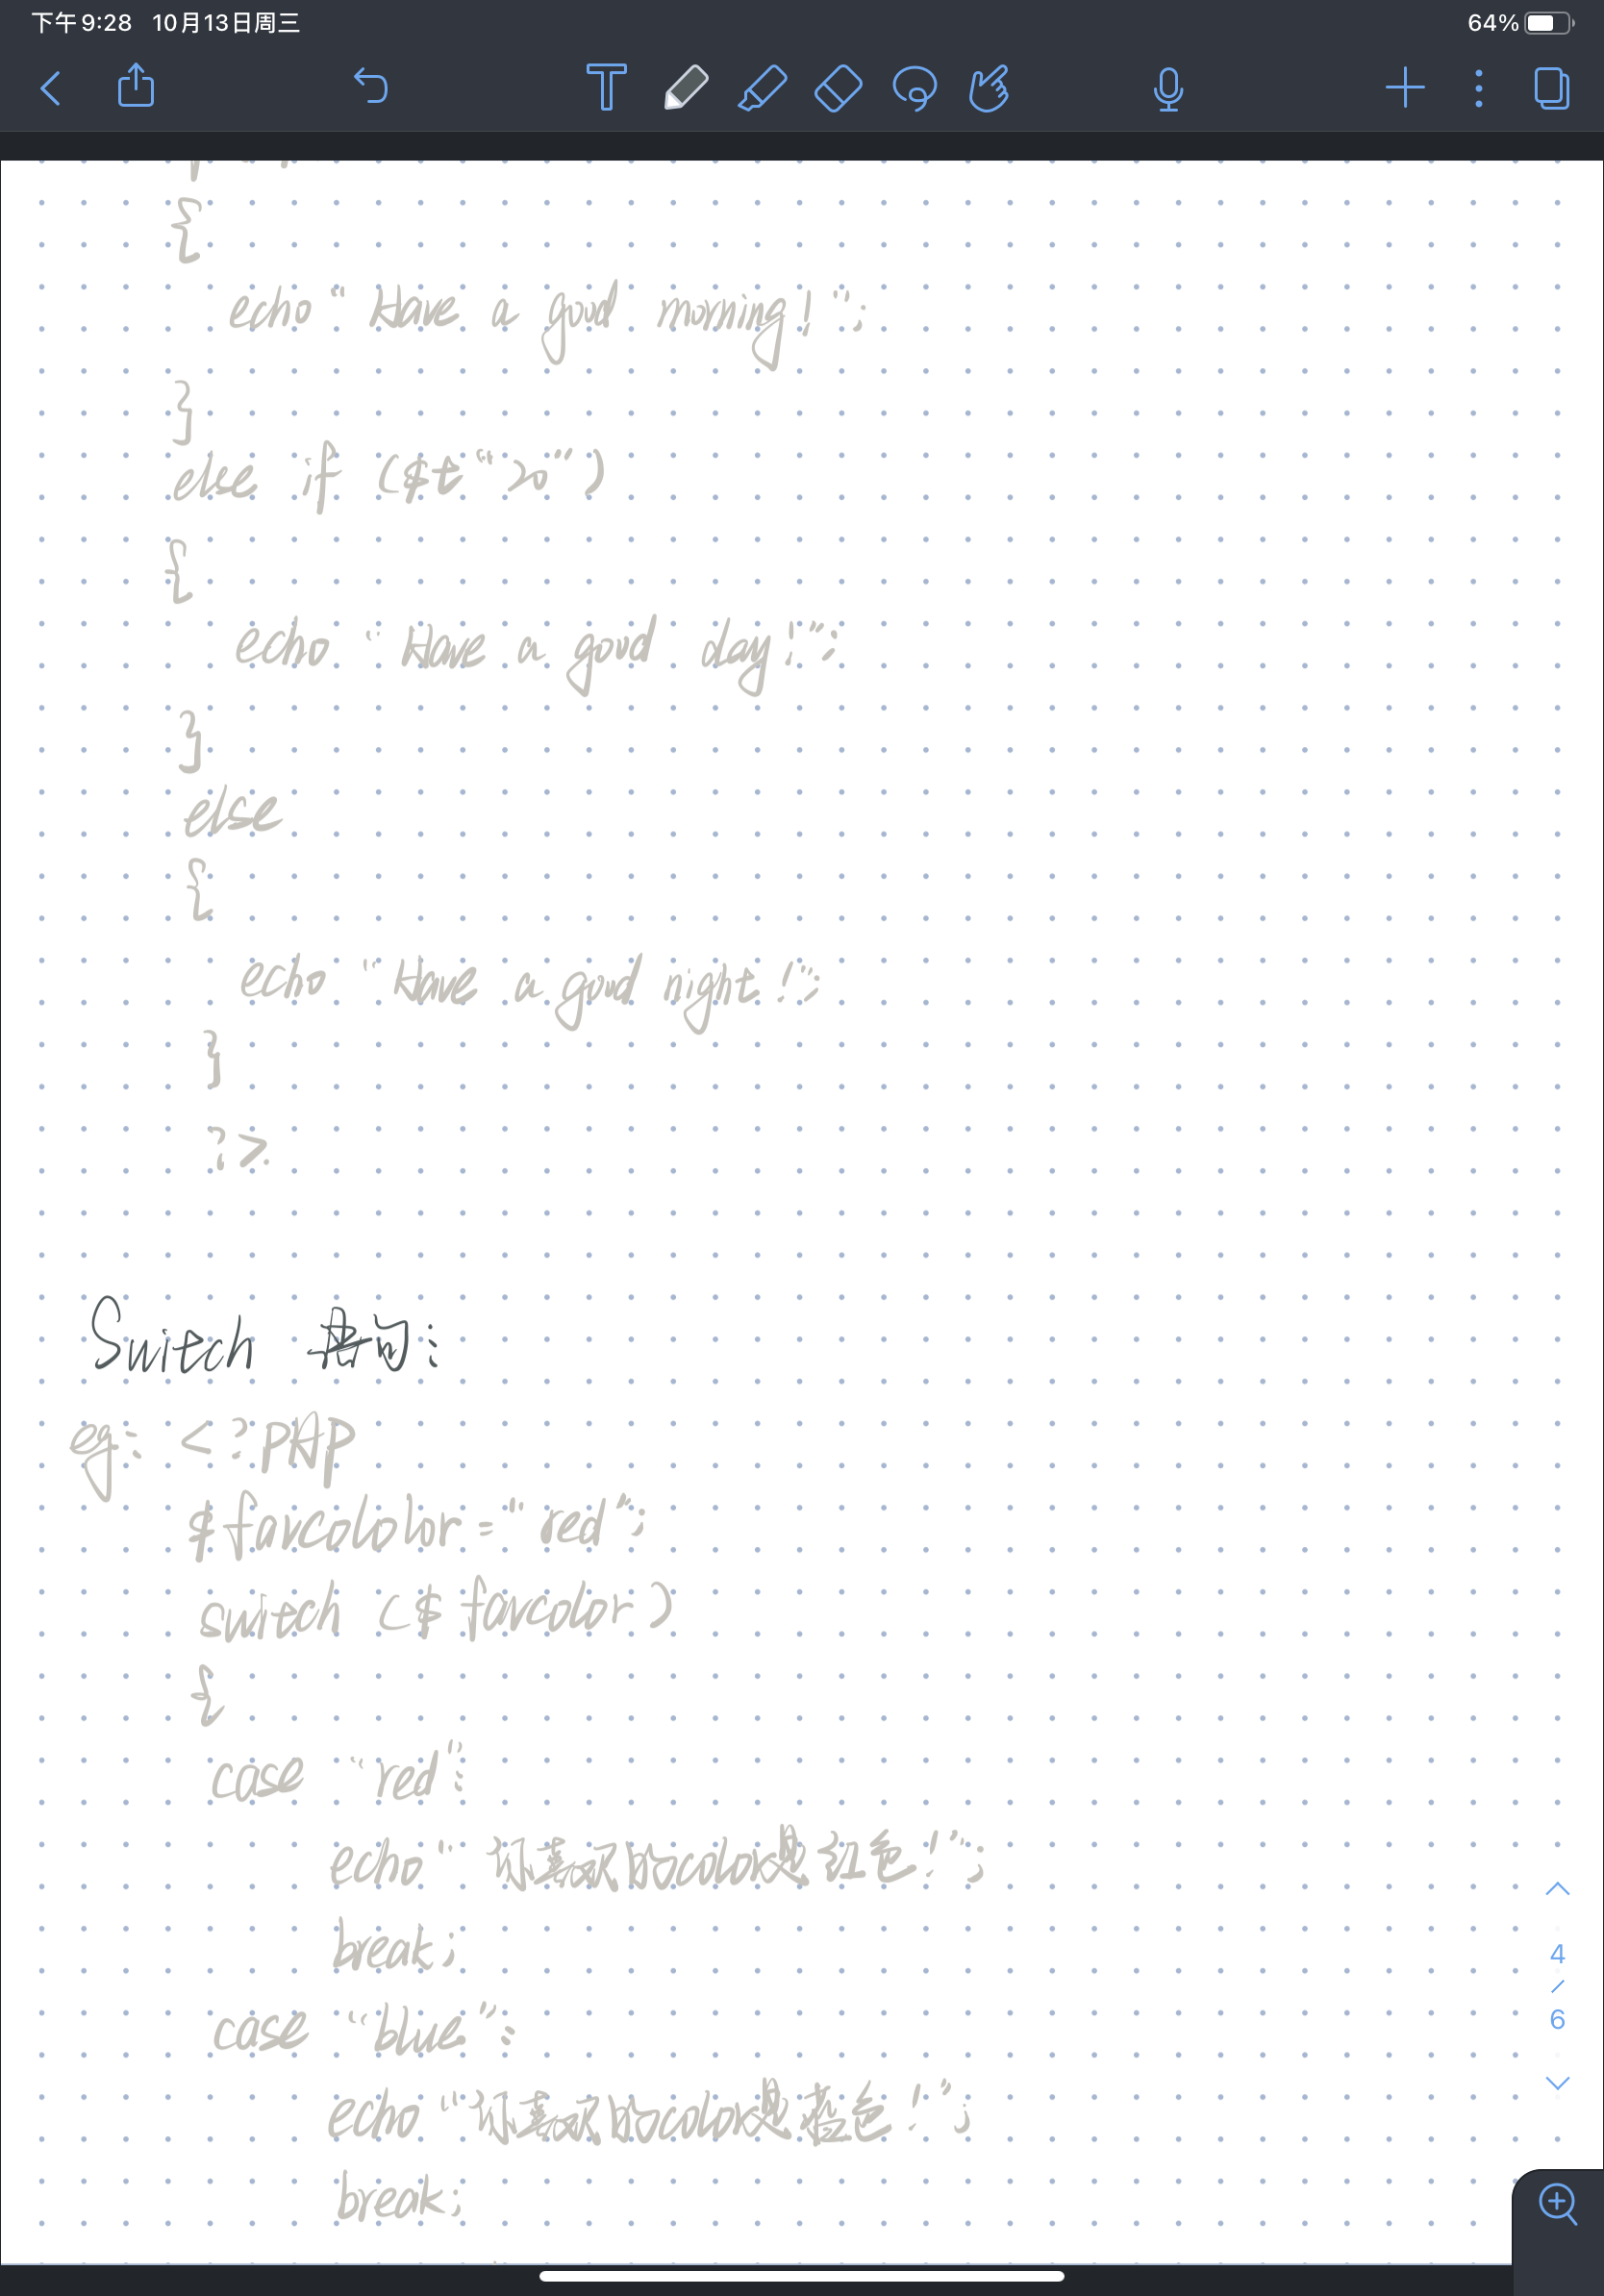 下午9:28 10月13日周三 64%
{
echo "Have a good morning!";
}
else if ($t "20")
{
echo "Have a good day!";
}
else
{
echo "Have a good night!";
}
?>
Switch 语句:
eg: <?PHP
$favcolor="red";
switch ($favcolor)
{
case "red":
echo "你喜欢的color是红色!";
break;
case "blue":
echo "你喜欢的color是蓝色!";
break;
4
/
6